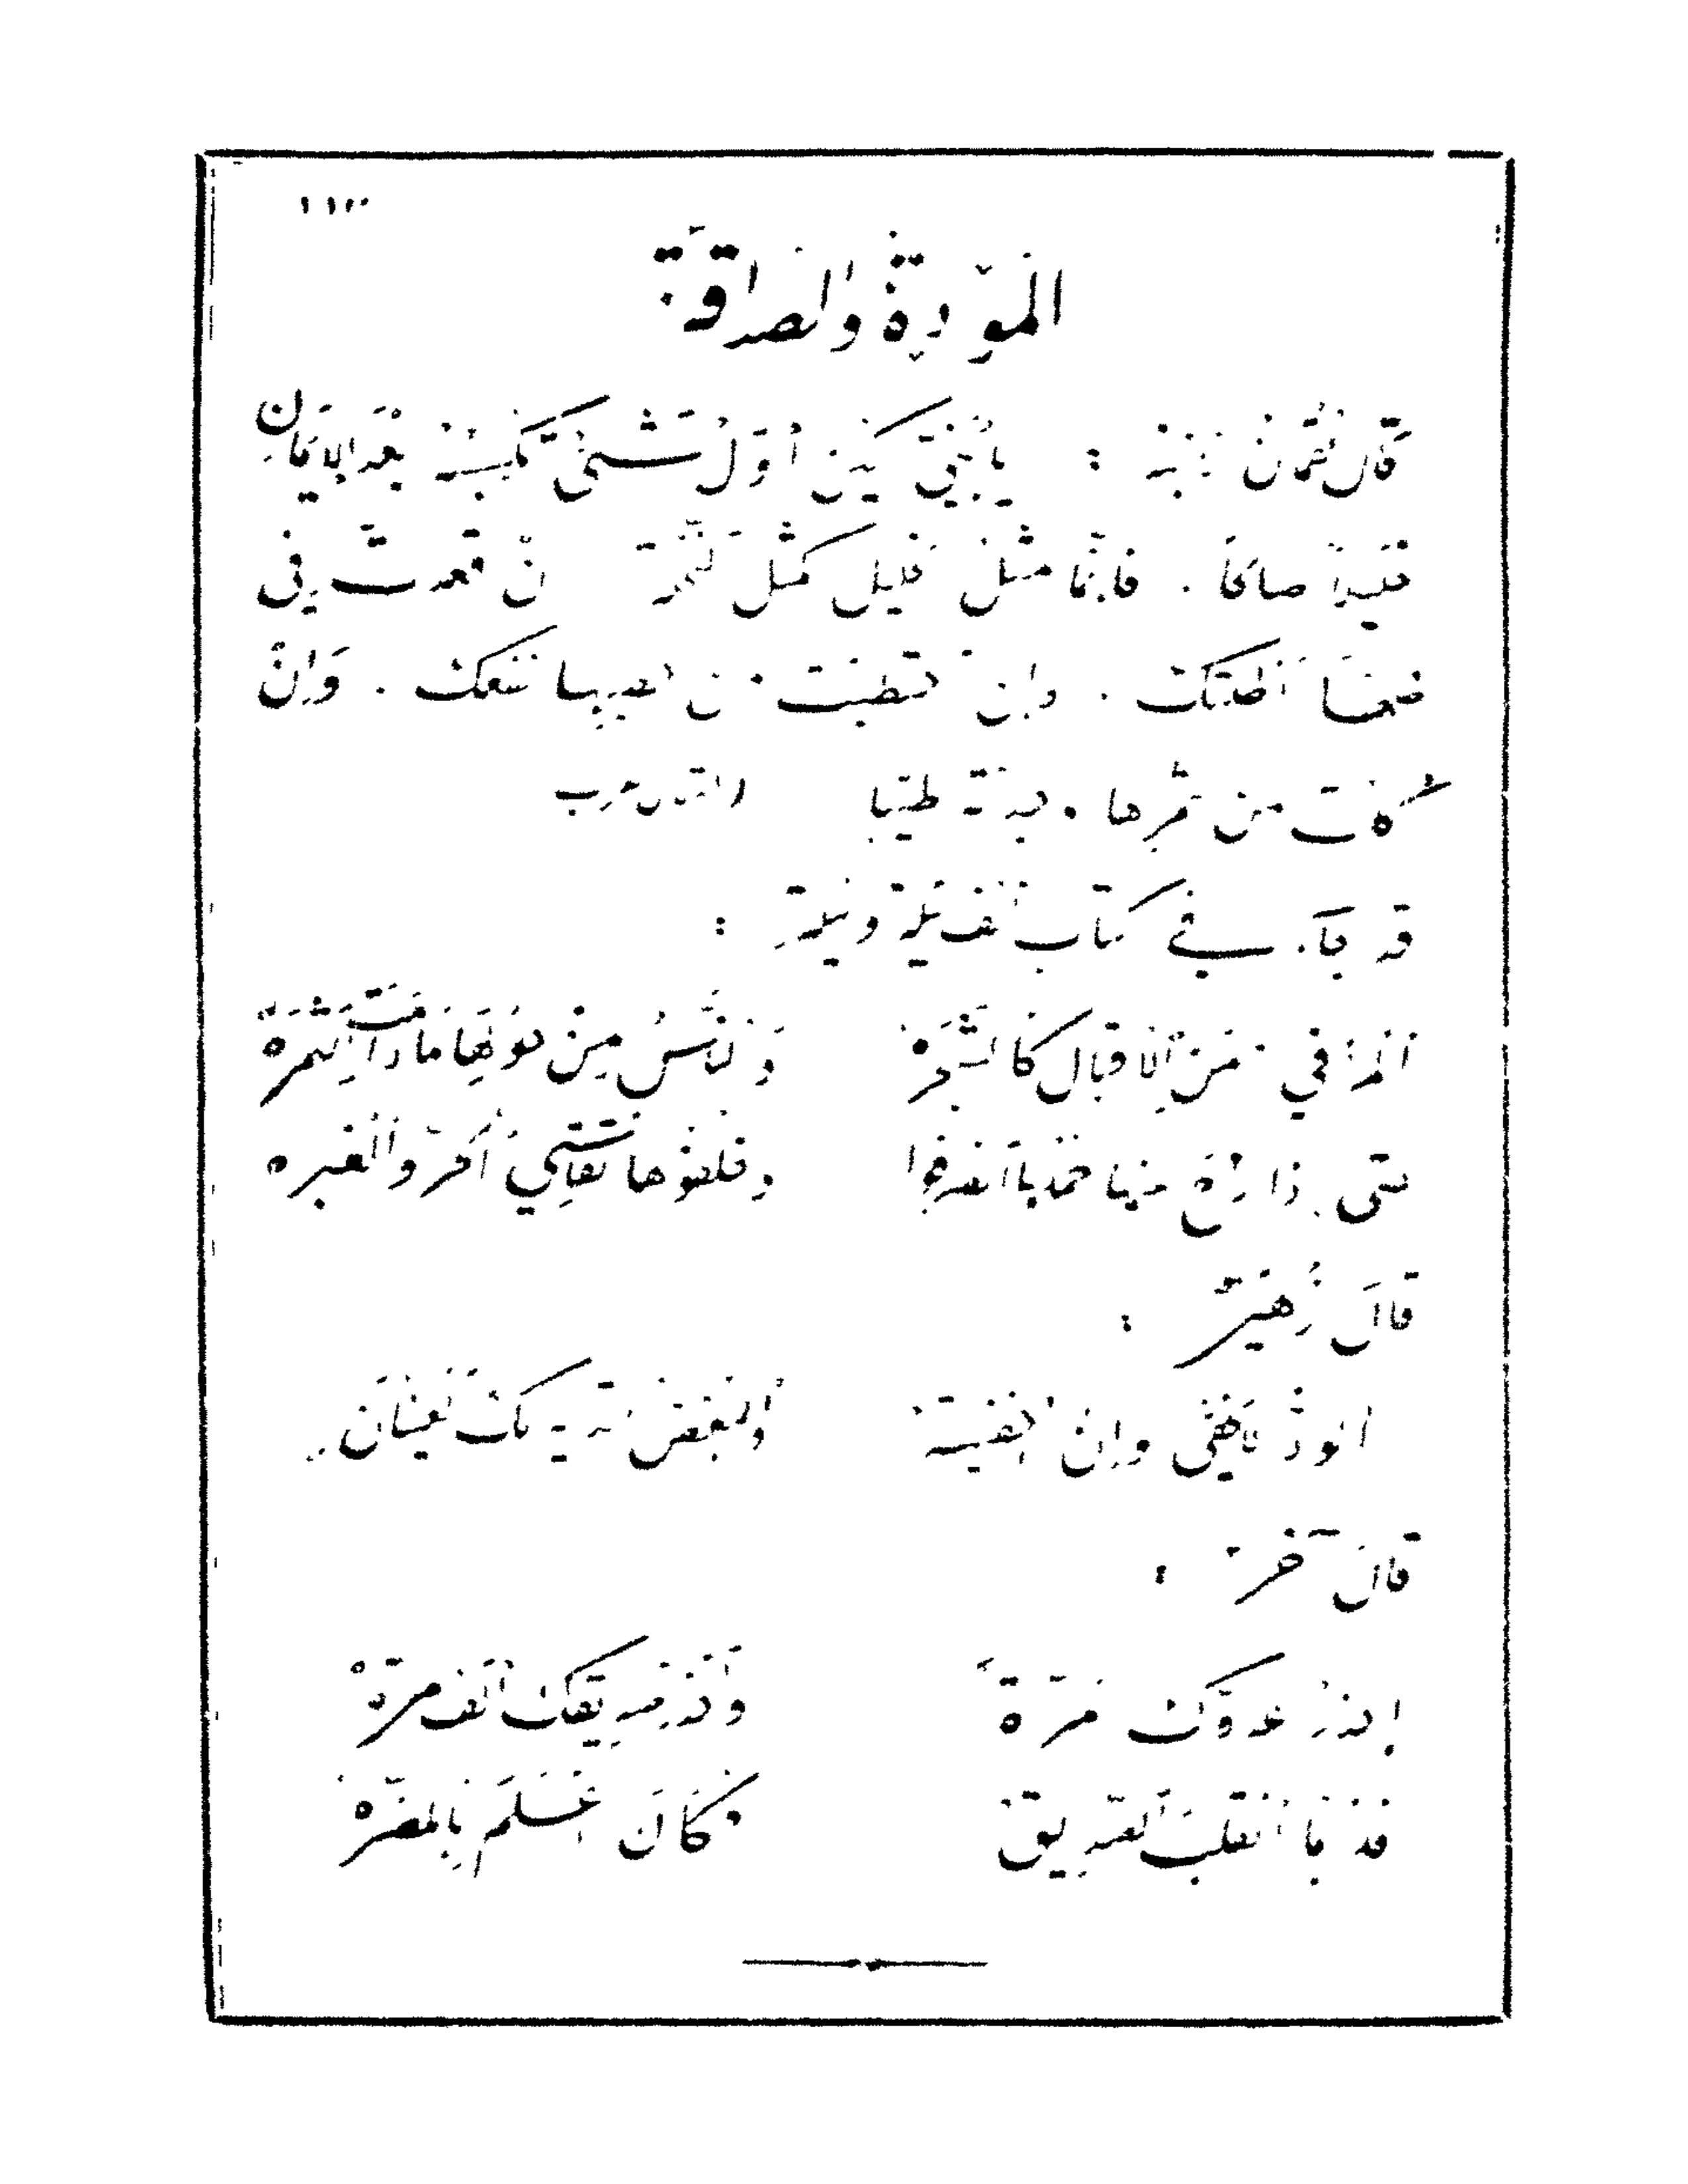 المودّة والصداقة
قال لقمان لابنه : يا بنيّ ليكن أوّل شيء تكسبه بعد الإيمان
خليلاً صالحًا . فإنّما مثل الخليل كمثل النخلة إن قعدت في
ظلّها أظلّتك . وإن احتطبت من حطبها نفعك . وإن
أكلت من ثمرها وجدته طيّبا
قد جاء في كتاب ألف ليلة وليلة :
المرء في زمن الإقبال كالشجرة والناس من حولها ما دامت الثمرة
حتى إذا راح منها حملها انصرفوا وخلّفوها تقاسي الحرّ والغبره
قال زهير :
الودّ لا يخفى وإن أخفيته والبغض تبديه لك العينان
قال آخر :
إحذر عدوّك مرّة واحذر صديقك ألف مرّة
فلربما انقلب الصديق فكان أعلم بالمضرّة